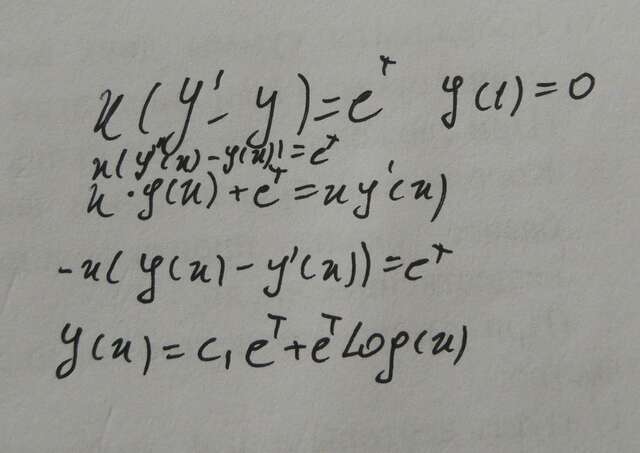 x(y'-y)=e^x y(1)=0
x(y'(x)-y(x))=e^x
x·y(x)+e^x=xy'(x)
-x(y(x)-y'(x))=e^x
y(x)=c₁e^x+e^x log(x)